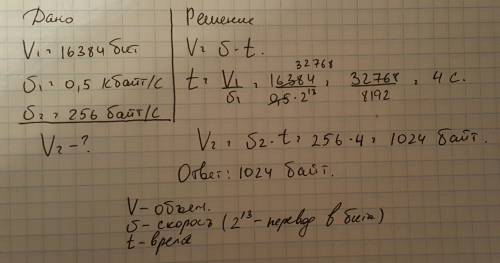 Дано
V₁ = 16384 бит
υ₁ = 0,5 кбайт/с
υ₂ = 256 байт/с
V₂ - ?
Решение
V = υ · t.
t = V₁/υ₁ = 16384/0,5 · 2¹³ = 32768/8192 = 4 с.
32768
V₂ = υ₂ · t = 256 · 4 = 1024 байт.
Ответ: 1024 байт.
V - объем.
υ - скорость (2¹³ - перевод в биты)
t - время